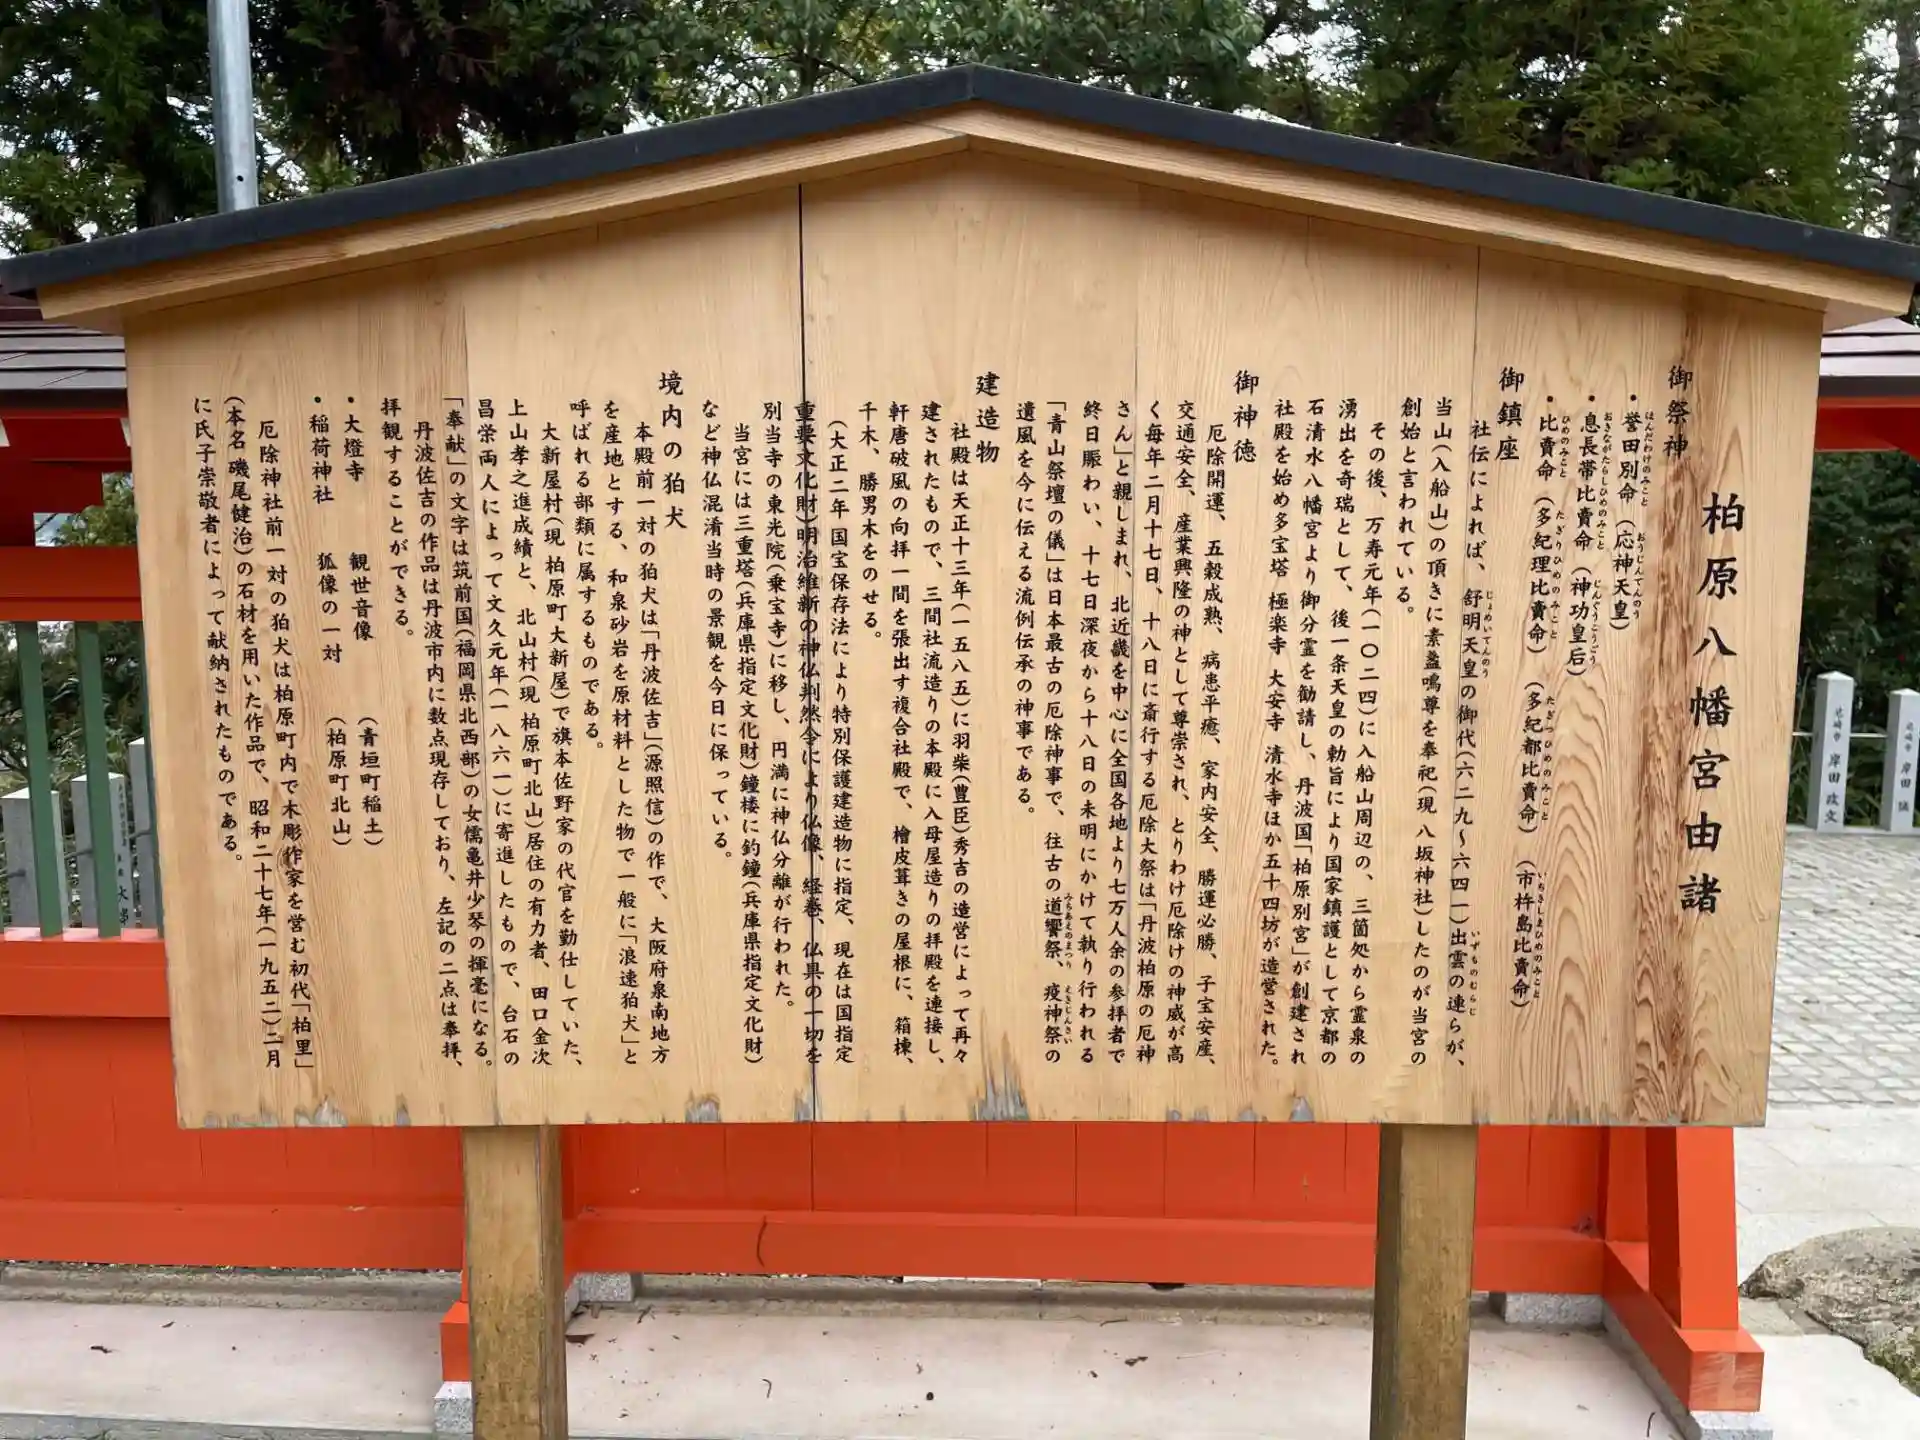 柏原八幡宮由諸
御祭神
・誉田別命（応神天皇）
・息長帯比賣命（神功皇后）
・比賣命（多紀理比賣命）（多紀都比賣命）（市杵島比賣命）
御鎮座
社伝によれば、舒明天皇の御代(六二九〜六四一)出雲の連らが、
当山(入船山)の頂きに素盞鳴尊を奉祀(現 八坂神社)したのが当宮の
創始と言われている。
その後、万寿元年(一〇二四)に入船山周辺の、三箇処から霊泉の
湧出を奇瑞として、後一条天皇の勅旨により国家鎮護として京都の
石清水八幡宮より御分霊を勧請し、丹波国「柏原別宮」が創建され
社殿を始め多宝塔 極楽寺 大安寺 清水寺ほか五十四坊が造営された。
御神徳
厄除開運、五穀成熟、病患平癒、家内安全、勝運必勝、子宝安産、
交通安全、産業興隆の神として尊崇され、とりわけ厄除けの神威が高
く毎年二月十七日、十八日に斎行する厄除大祭は「丹波柏原の厄神
さん」と親しまれ、北近畿を中心に全国各地より七万人余の参拝者で
終日賑わい、十七日深夜から十八日の未明にかけて執り行われる
「青山祭壇の儀」は日本最古の厄除神事で、往古の道饗祭、疫神祭の
遺風を今に伝える流例伝承の神事である。
建造物
社殿は天正十三年(一五八五)に羽柴(豊臣)秀吉の造営によって再々
建されたもので、三間社流造りの本殿に入母屋造りの拝殿を連接し、
軒唐破風の向拝一間を張出す複合社殿で、檜皮葺きの屋根に、箱棟、
千木、勝男木をのせる。
(大正二年 国宝保存法により特別保護建造物に指定、現在は国指定
重要文化財)明治維新の神仏判然令により仏像、経巻、仏具の一切を
別当寺の東光院(乗宝寺)に移し、円満に神仏分離が行われた。
当宮には三重塔(兵庫県指定文化財)鐘楼に釣鐘(兵庫県指定文化財)
など神仏混淆当時の景観を今日に保っている。
境内の狛犬
本殿前一対の狛犬は「丹波佐吉」(源照信)の作で、大阪府泉南地方
を産地とする、和泉砂岩を原材料とした物で一般に「浪速狛犬」と
呼ばれる部類に属するものである。
大新屋村(現 柏原町大新屋)で旗本佐野家の代官を勤仕していた、
上山孝之進成績と、北山村(現 柏原町北山)居住の有力者、田口金次
昌栄両人によって文久元年(一八六一)に寄進したもので、台石の
「奉献」の文字は筑前国(福岡県北西部)の女儒亀井少琴の揮毫になる。
丹波佐吉の作品は丹波市内に数点現存しており、左記の二点は奉拝、
拝観することができる。
・大燈寺 観世音像 (青垣町稲土)
・稲荷神社 狐像の一対 (柏原町北山)
厄除神社前一対の狛犬は柏原町内で木彫作家を営む初代「柏里」
(本名 磯尾健治)の石材を用いた作品で、昭和二十七年(一九五二)二月
に氏子崇敬者によって献納されたものである。